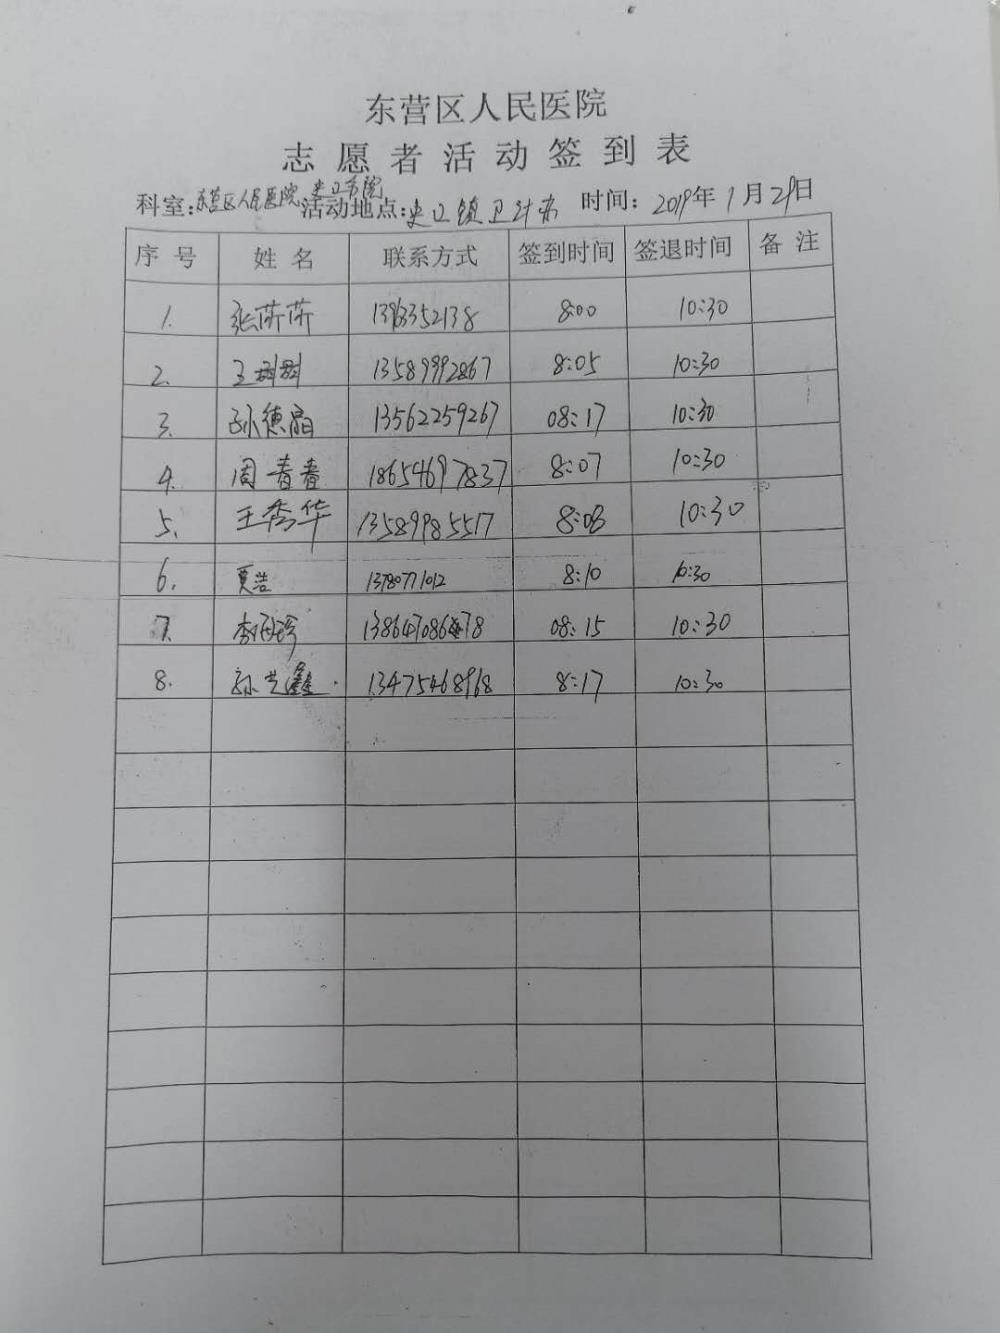 东营区人民医院
志愿者活动签到表
科室:东营区人民医院史口分院 活动地点:史口镇卫计办 时间:2019年1月29日
序号 姓名 联系方式 签到时间 签退时间 备注
1. 张莎莎 1396352138 8:00 10:30
2. 王 13589992867 8:05 10:30
3. 孙德晶 13562259267 08:17 10:30
4. 周春春 18654697837 8:07 10:30
5. 王秀华 13589985517 8:08 10:30
6. 贾浩 13780771012 8:10 10:30
7. 李丙珍 138647086478 08:15 10:30
8. 孙芝鑫 13475468968 8:17 10:30